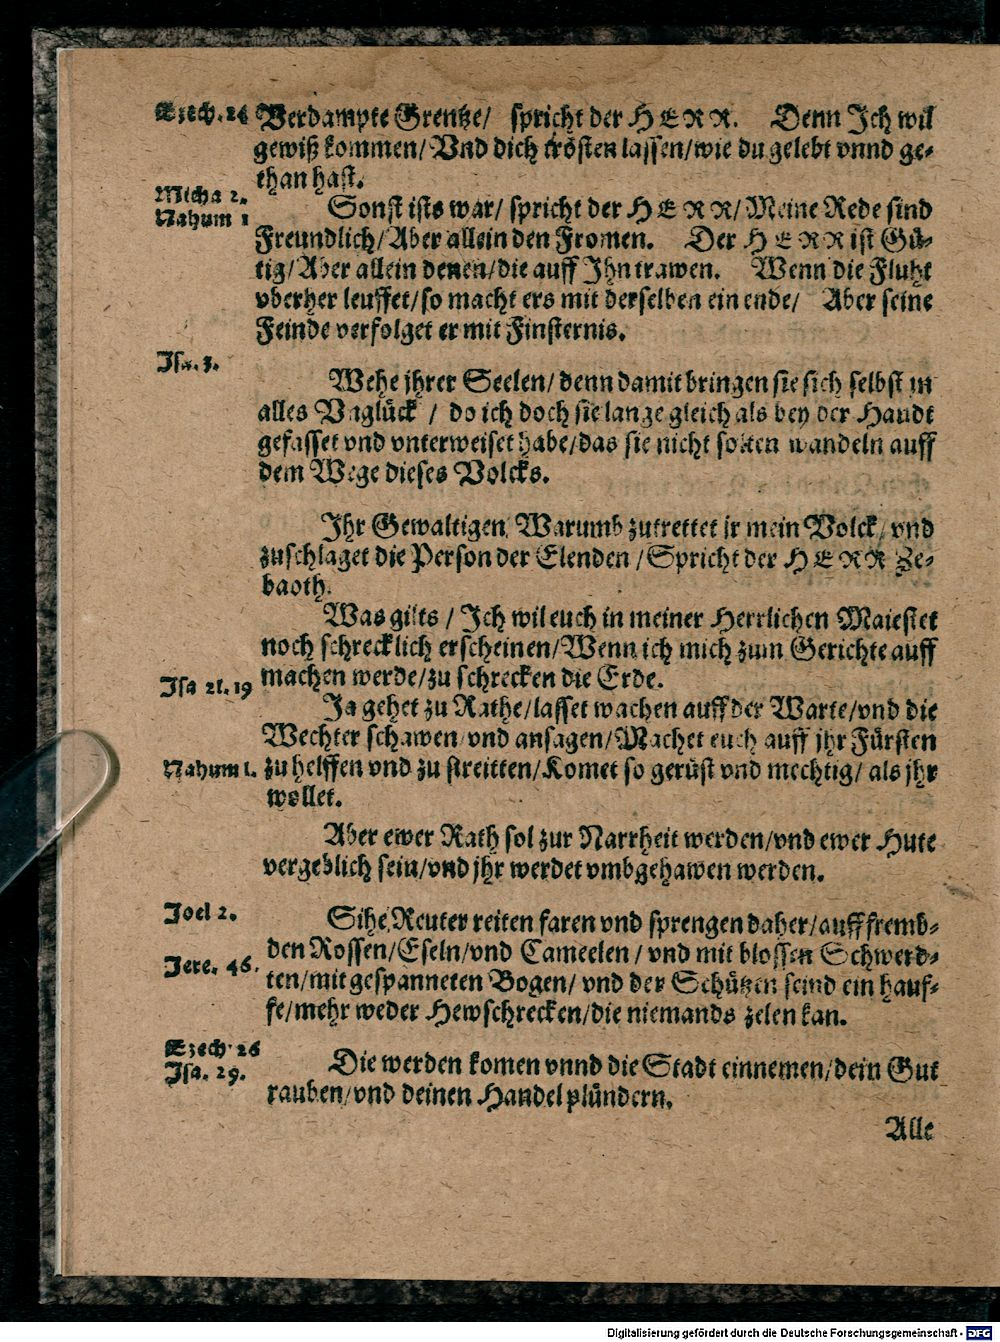 Ezech. 24
Verdampte Grentze/ spricht der HERR. Denn Ich wil
gewiß kommen/ Vnd dich trösten lassen/ wie du gelebt vnnd ge-
than hast.
Micha 2.
Nahum 1
Sonst ists war/ spricht der HERR/ Meine Rede sind
Freundlich/ Aber allein den Fromen. Der HERR ist Gü-
tig/ Aber allein denen/ die auff Ihn trawen. Wenn die Fluht
vberher leuffet/ so macht ers mit derselben ein ende/ Aber seine
Feinde verfolget er mit Finsternis.
Isa. 3.
Wehe jhrer Seelen/ denn damit bringen sie sich selbst in
alles Vnglück / do ich doch sie lange gleich als bey der Handt
gefasset vnd vnterweiset habe/ das sie nicht solten wandeln auff
dem Wege dieses Volcks.
Ihr Gewaltigen/ Warumb zutrettet ir mein Volck/ vnd
zuschlaget die Person der Elenden / Spricht der HERR Ze-
baoth.
Was gilts / Ich wil euch in meiner Herrlichen Maiestet
noch schrecklich erscheinen/ Wenn ich mich zum Gerichte auff
machen werde/ zu schrecken die Erde.
Isa 21. 19
Ja gehet zu Rathe/ lasset wachen auff der Warte/ vnd die
Wechter schawen vnd ansagen/ Machet euch auff jhr Fürsten
Nahum 1.
zu helffen vnd zu streitten/ Komet so gerüst vnd mechtig/ als jhr
wollet.
Aber ewer Rath sol zur Narrheit werden/ vnd ewer Hute
vergeblich sein/ vnd jhr werdet vmbgehawen werden.
Joel 2.
Sihe/ Reuter reiten faren vnd sprengen daher/ auff fremb-
den Rossen/ Eseln/ vnd Cameelen / vnd mit blossen Schwerd-
Jere. 46.
ten/ mit gespanneten Bogen/ vnd der Schützen seind ein hauf-
fe/ mehr weder Hewschrecken/ die niemands zelen kan.
Ezech 26
Isa. 29.
Die werden komen vnnd die Stadt einnemen/ dein Gut
rauben/ vnd deinen Handel plündern.
Alle
Digitalisierung gefördert durch die Deutsche Forschungsgemeinschaft - DFG